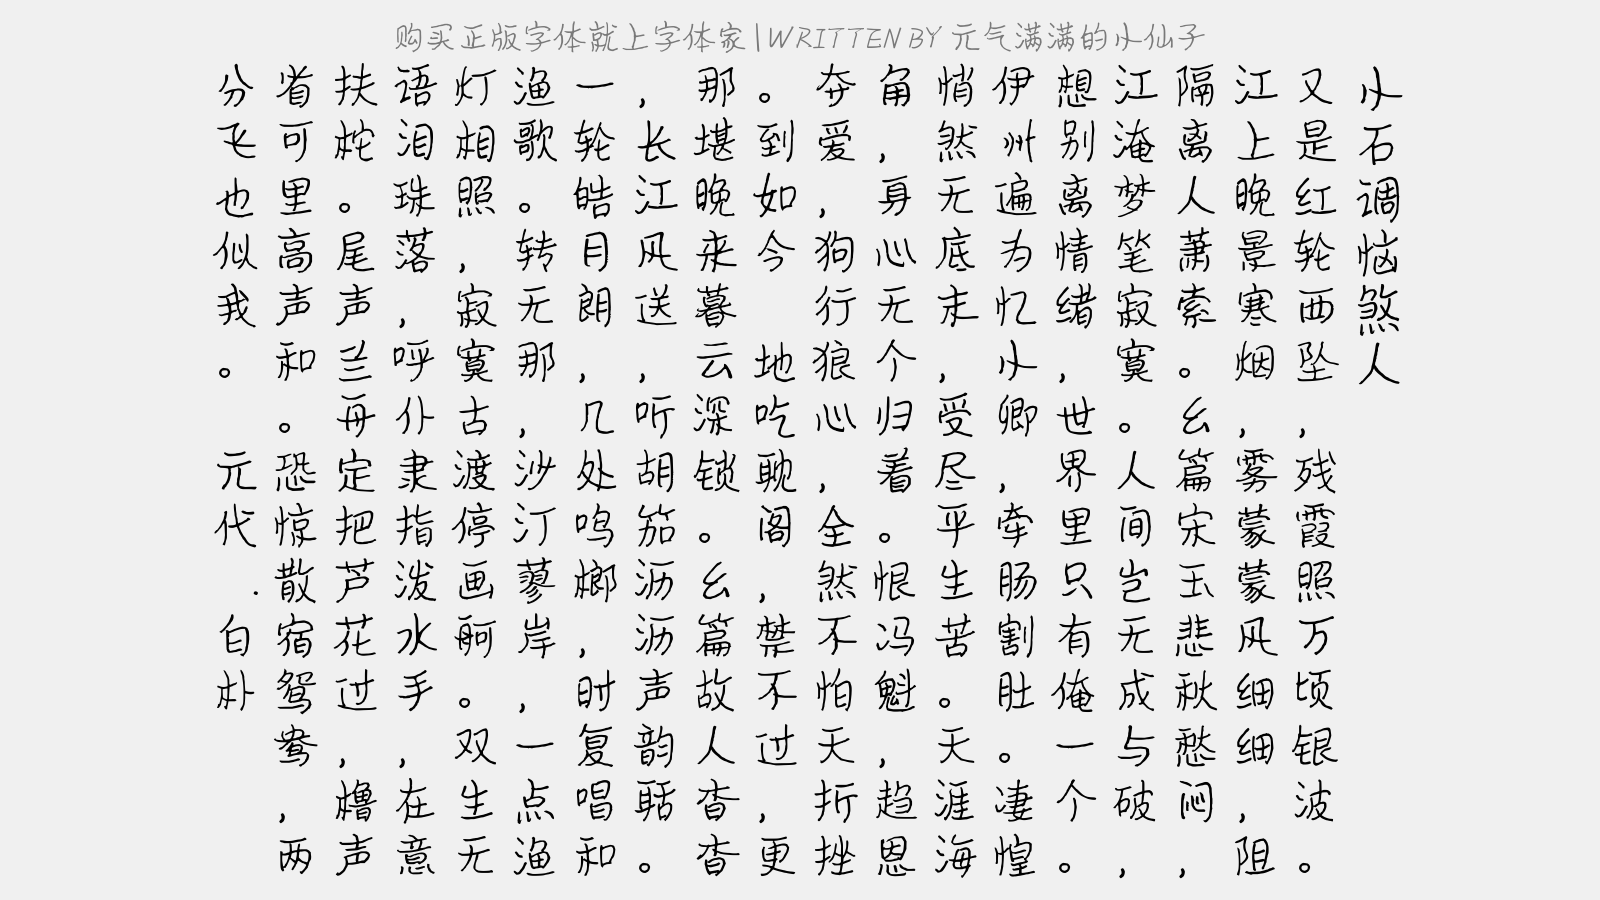 购买正版字体就上字体家|WRITTEN BY 元气满满的小仙子
小石调恼煞人
又是红轮西坠，残霞照万顷银波。
江上晚景寒烟，雾蒙蒙风细细，阻
隔离人萧索。幺篇宋玉悲秋愁闷，
江淹梦笔寂寞。人间岂无成与破，
想别离情绪，世界里只有俺一个。
伊州遍为忆小卿，牵肠割肚。凄惶
悄然无底末，受尽平生苦。天涯海
角，身心无个归着。恨冯魁，趋恩
夺爱，狗行狼心，全然不怕天折挫
。到如今 地吃耽阁，禁不过，更
那堪晚来暮云深锁。幺篇故人杳杳
，长江风送，听胡笳沥沥声韵聒。
一轮皓月朗，几处鸣榔，时复唱和
渔歌。转无那，沙汀蓼岸，一点渔
灯相照，寂寞古渡停画舸。双生无
语泪珠落，呼仆隶指泼水手，在意
扶柁。尾声兰舟定把芦花过，橹声
省可里高声和。恐惊散宿鸳鸯，两
分飞也似我。 元代.白朴